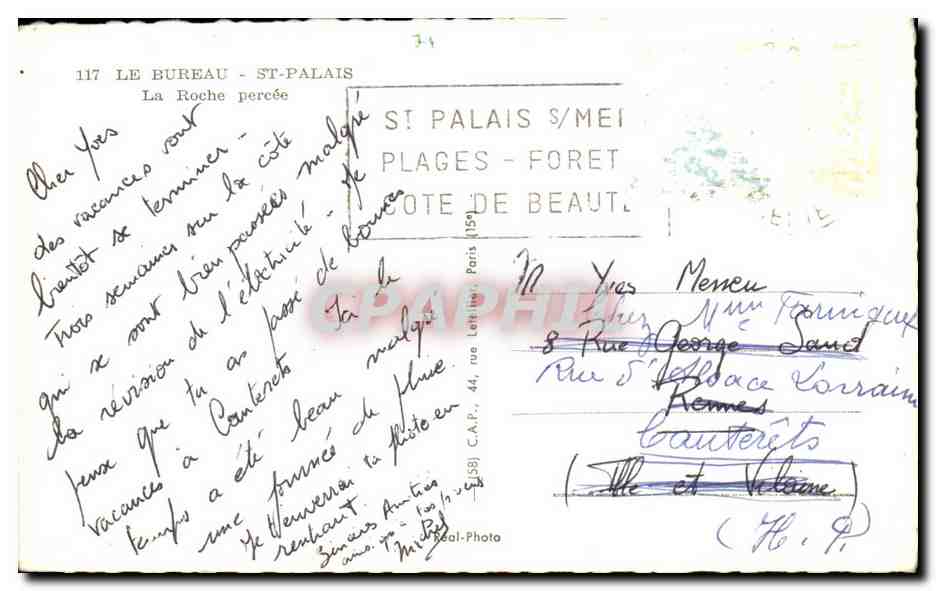 71
117 LE BUREAU - ST-PALAIS
La Roche percée
ST PALAIS S/MER
PLAGES - FORET
COTE DE BEAUTE
Cher Yves
des vacances sont
bientôt se terminer -
Trois semaines sur la côte
qui se sont bien passées malgré
la révision de l'électricité - Je
peux que tu as passé de bonnes
vacances à Cauterets Ta le
temps a été beau malgré
une journée de pluie.
Je t'enverrai ta photo en
rentrant.
Sincères Amitiés
ainsi qu'à tous
Michel
(158) C.A.P., 44, rue Letellier, Paris (15e)
Réal-Photo
CPAPHIL
M Yves Messeu
Chez Mme
8 Rue George Sand
Rue d'Alsace Lorraine
Rennes
Cauterêts
(Ille et Vilaine)
(H. P.)